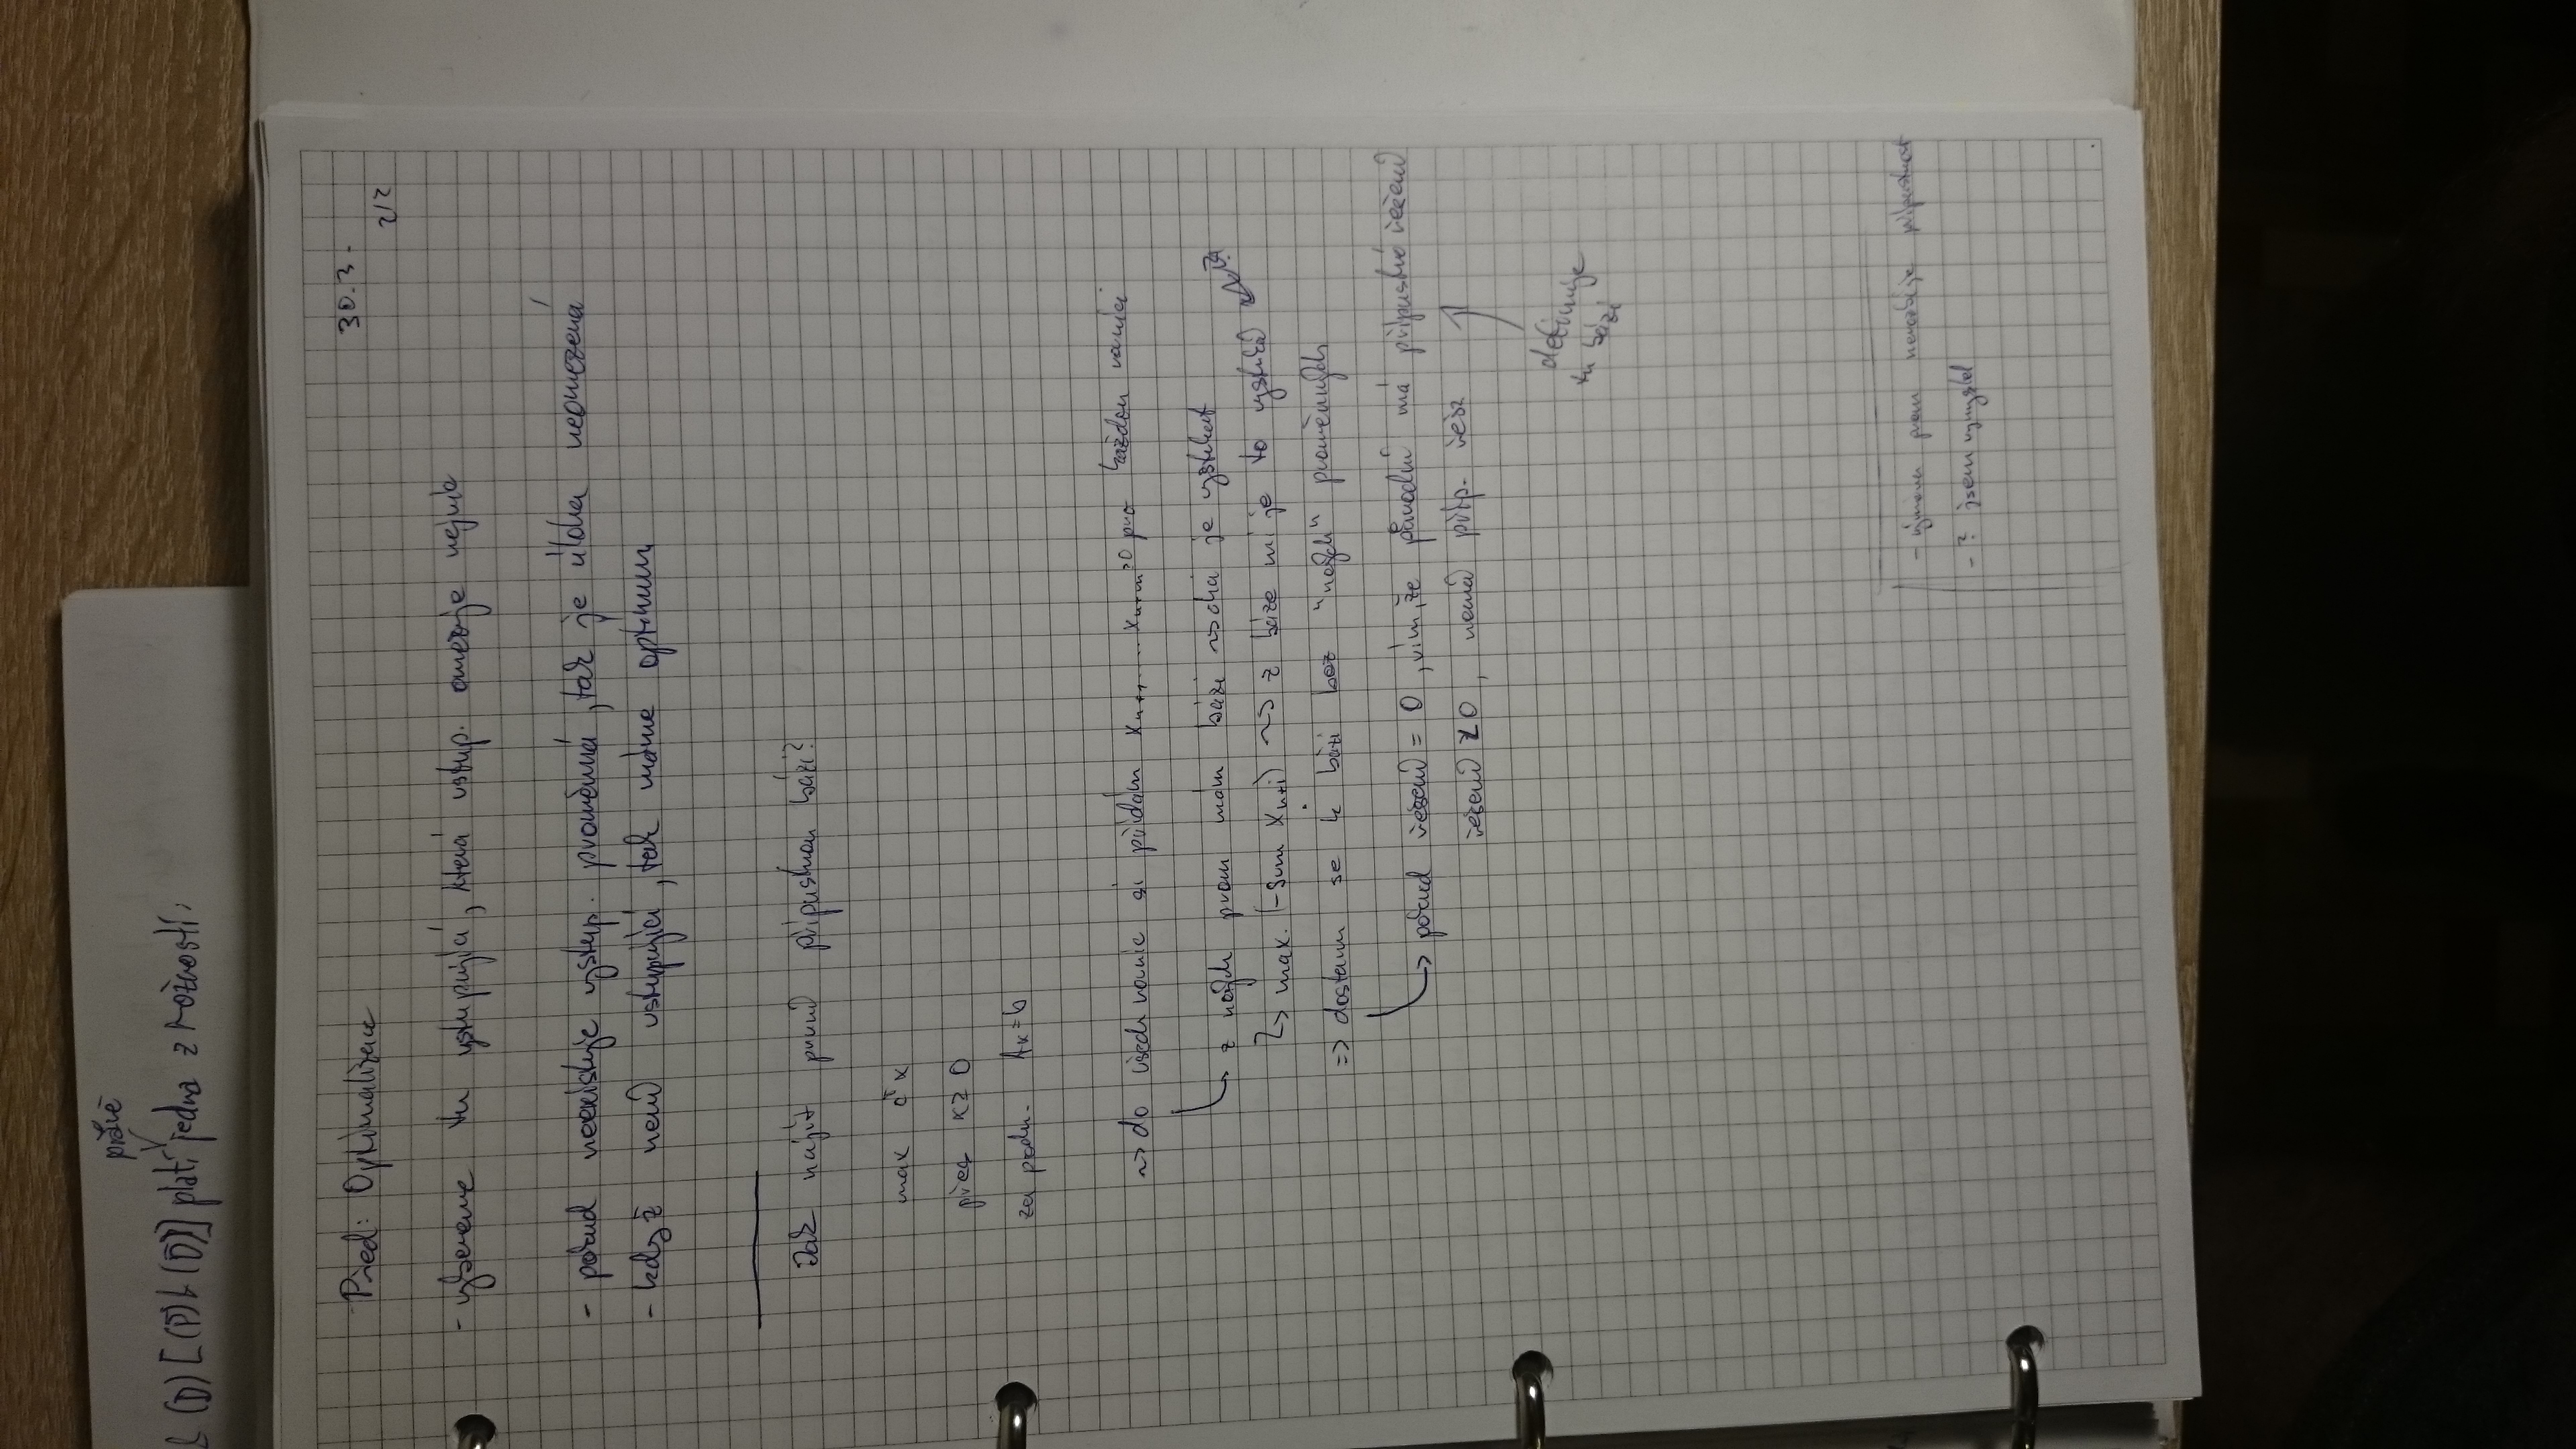 práve
& (D) [(P) & (D)] platí jedna z možností:
30.3.
Před: Optimalizace 2/2
- vybereme tu vystupující, která vstup. omezuje nejvíc
- pokud neexistuje vystup. proměnná, tak je úloha neomezená
- když není vstupující, tak máme optimum
Jak najít první přípustnou bázi?
max cᵀx
přes x≥0
za podm. Ax=b
~> do všech rovnic si přidám xₙ₊₁.....xₙ₊ₘ≥0 pro každou rovnici
↳ z nových prom mám bázi ~> chci je vystrkat
↳ max. (-Sum xₙ₊ᵢ) ~> z báze mi je to vystrká
=> dostanu se k bázi bez "nových" proměnných
↳ pokud řešení = 0, vím, že původní má přípustné řešení
řešení ≠ 0, nemá příp. řeš
definuje
tu bázi
- výmena prom nerozbije přípustnost
- ? jsem vymyslel